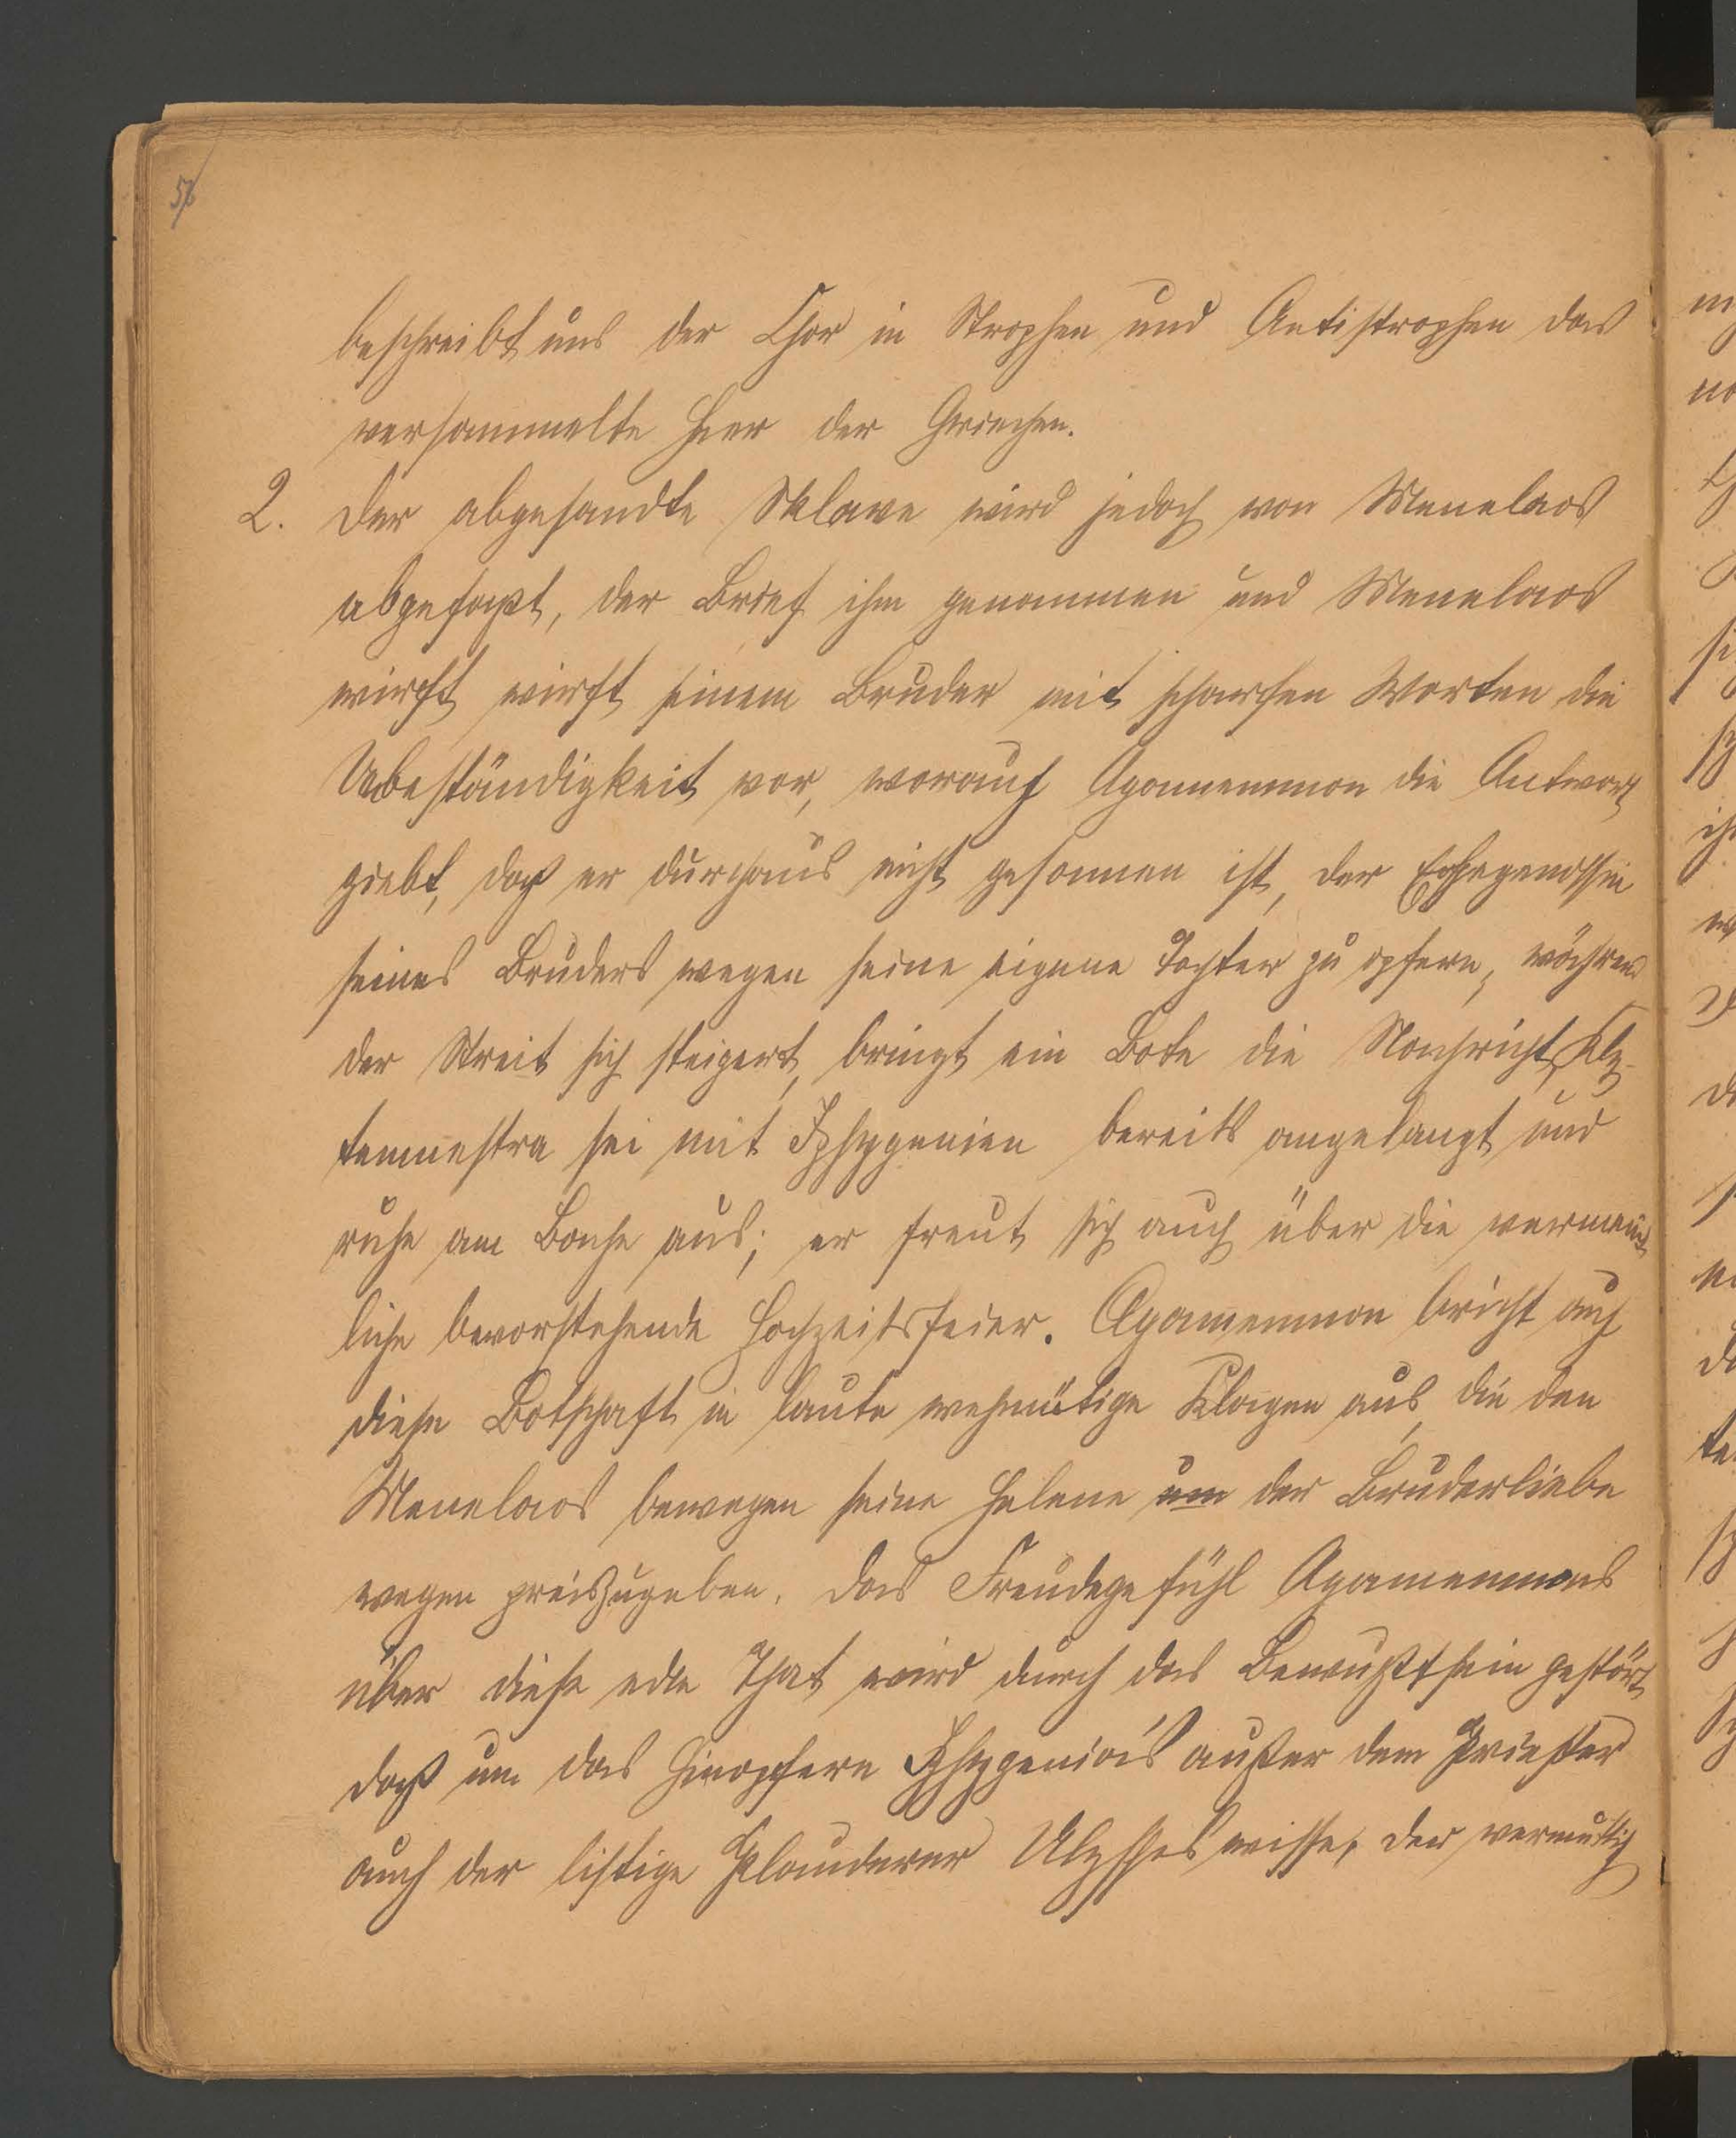 56
beschreibt uns der Chor in Strophen und Antistrophen das
versammelte Heer der Griechen.
2. Der abgesandte Sklave wird jedoch von Menelaos
abgefaßt, der Brief ihm genommen und Menelaos
wirft wirft seinem Bruder mit scharfen Worten die
Unbeständigkeit vor, worauf Agamemnon die Antwort
giebt, daß er durchaus nicht gesonnen ist, der Ehegenossin
seines Bruders wegen seine eigene Tochter zu opfern, während
der Streit sich steigert, bringt ein Bote die Nachricht, Kly-
temnestra sei mit Iphygenien bereits angelangt und
ruhe am Bache aus; er freut sich auch über die vermeint
liche bevorstehende Hochzeitsfeier. Agamemnon bricht auf
diese Botschaft in laute wehmütige Klagen aus, die den
Menelaos bewegen seine Helene um der Bruderliebe
wegen preiszugeben. Das Freudegefühl Agamemnons
über diese edle That wird durch das Bewußtsein gestört
daß um das Hinopfern Iphygenia's außer dem Priester
auch der listige Plauderer Ulysses wisse, der vermutlich